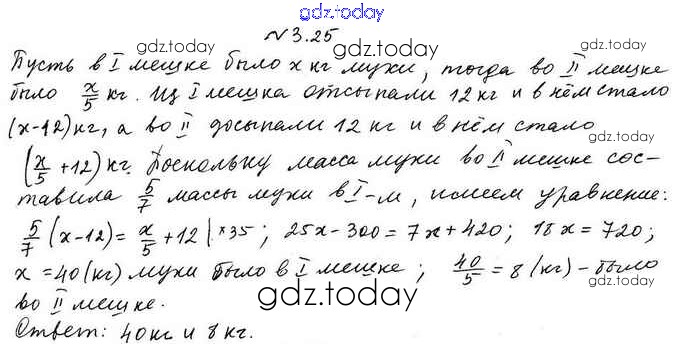 gdz.today
№3.25
gdz.today gdz.today
Пусть в I мешке было x кг муки, тогда во II мешке
было x/5 кг. Из I мешка отсыпали 12 кг и в нём стало
gdz.today gdz.today
(x-12) кг, а во II досыпали 12 кг и в нём стало
(x/5 + 12) кг. Поскольку масса муки во II мешке сос-
gdz.today gdz.today
тавила 5/7 массы муки в I-м, имеем уравнение:
5/7 (x-12) = x/5 + 12 | ×35; 25x-300 = 7x+420; 18x = 720;
gdz.today gdz.today
x = 40 (кг) муки было в I мешке; 40/5 = 8 (кг) - было
во II мешке.
gdz.today
Ответ: 40 кг и 8 кг.